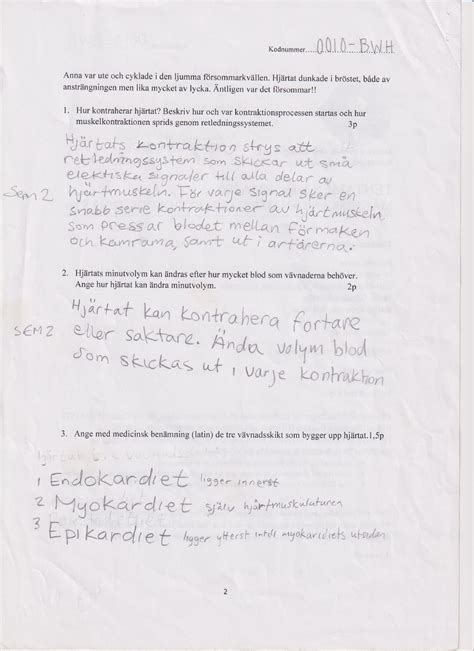 Kodnummer....0010-BWH
Anna var ute och cyklade i den ljumma försommarkvällen. Hjärtat dunkade i bröstet, både av
ansträngningen men lika mycket av lycka. Äntligen var det försommar!!
1. Hur kontraherar hjärtat? Beskriv hur och var kontraktionsprocessen startas och hur
muskelkontraktionen sprids genom retledningssystemet. 3p
Hjärtats kontraktion strys att
retledningssystem som skickar ut små
elektiska signaler till alla delar av
SEM 2 hjärtmuskeln. För varje signal sker en
snabb serie kontraktioner av hjärtmuskeln,
som pressar blodet mellan förmaken
och kamrama, samt ut i artärerna.
2. Hjärtats minutvolym kan ändras efter hur mycket blod som vävnaderna behöver.
Ange hur hjärtat kan ändra minutvolym. 2p
Hjärtat kan kontrahera fortare
SEM2 eller saktare. Ända volym blod
som skickas ut i varje kontraktion
3. Ange med medicinsk benämning (latin) de tre vävnadsskikt som bygger upp hjärtat. 1,5p
1 Endokardiet ligger innerst
2 Myokardiet själv hjärtmuskulaturen
3 Epikardiet ligger ytterst myokardiets utsidan
2